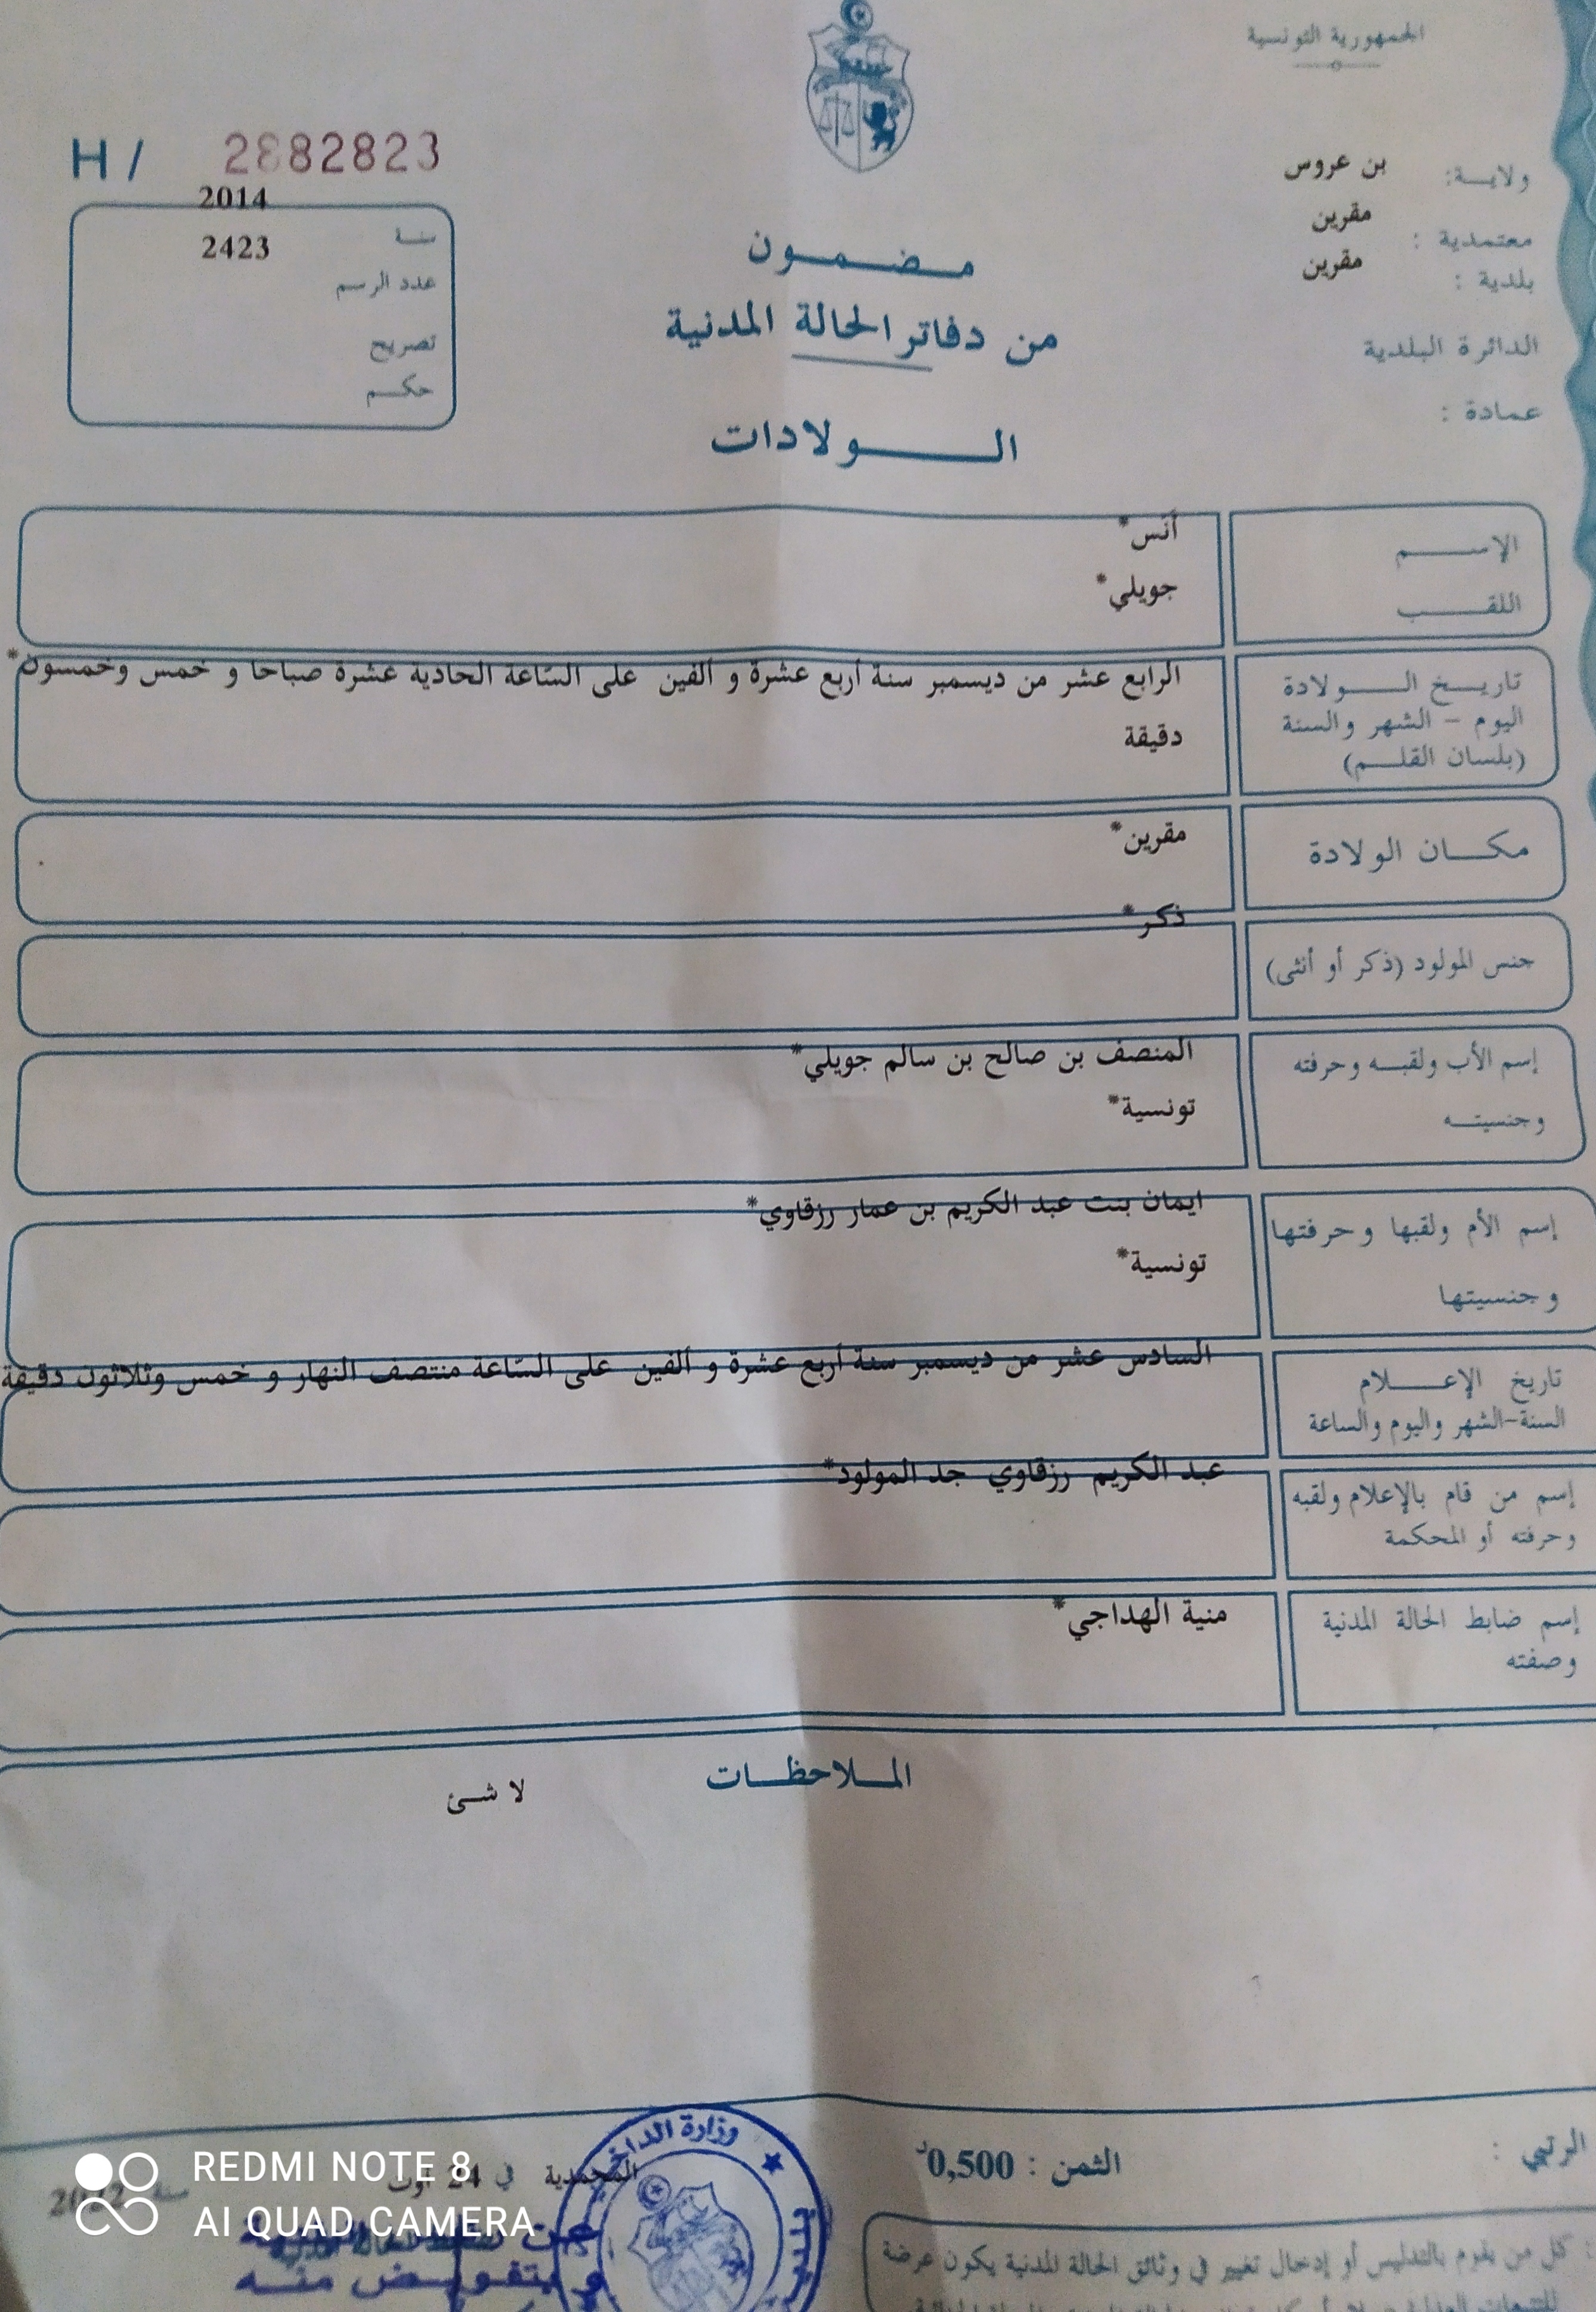 الجمهورية التونسية
H / 2882823
ولايـــة: بن عروس
معتمدية : مقرين
بلدية : مقرين
الدائرة البلدية
عمادة :
سنـــة 2014
عدد الرسم 2423
تصريح
حكـــم
مـــضـــمـــون
من دفاتر الحالة المدنية
الـــــولادات
الإســـــم أنس*
اللقـــــب جويلي*
تاريـــخ الـــــولادة
اليوم – الشهر والسنة
(بلسان القلـــم)
الرابع عشر من ديسمبر سنة أربع عشرة و ألفين على السّاعة الحادية عشرة صباحا و خمس وخمسون*
دقيقة
مكـــان الولادة مقرين*
جنس المولود (ذكر أو أنثى) ذكر*
إسم الأب ولقبـــه وحرفته المنصف بن صالح بن سالم جويلي*
وجنسيتـــه تونسية*
إسم الأم ولقبها وحرفتها ايمان بنت عبد الكريم بن عمار رزقاوي*
وجنسيتها تونسية*
تاريخ الإعـــــلام
السنة-الشهر واليوم والساعة
السادس عشر من ديسمبر سنة أربع عشرة و ألفين على السّاعة منتصف النهار و خمس وثلاثون دقيقة
إسم من قام بالإعلام ولقبه
وحرفته أو المحكمة
عبد الكريم رزقاوي جد المولود*
إسم ضابط الحالة المدنية
وصفته
منية الهداجي*
المـــلاحظـــات
لا شئ
الرتبي :
الثمن : 0,500د
المحمدية في 24 اوت سنة
وزارة الداخلية
وبتفويـــض منـــه
كل من يقوم بالتدليس أو إدخال تغيير في وثائق الحالة المدنية يكون عرضة
REDMI NOTE 8
AI QUAD CAMERA